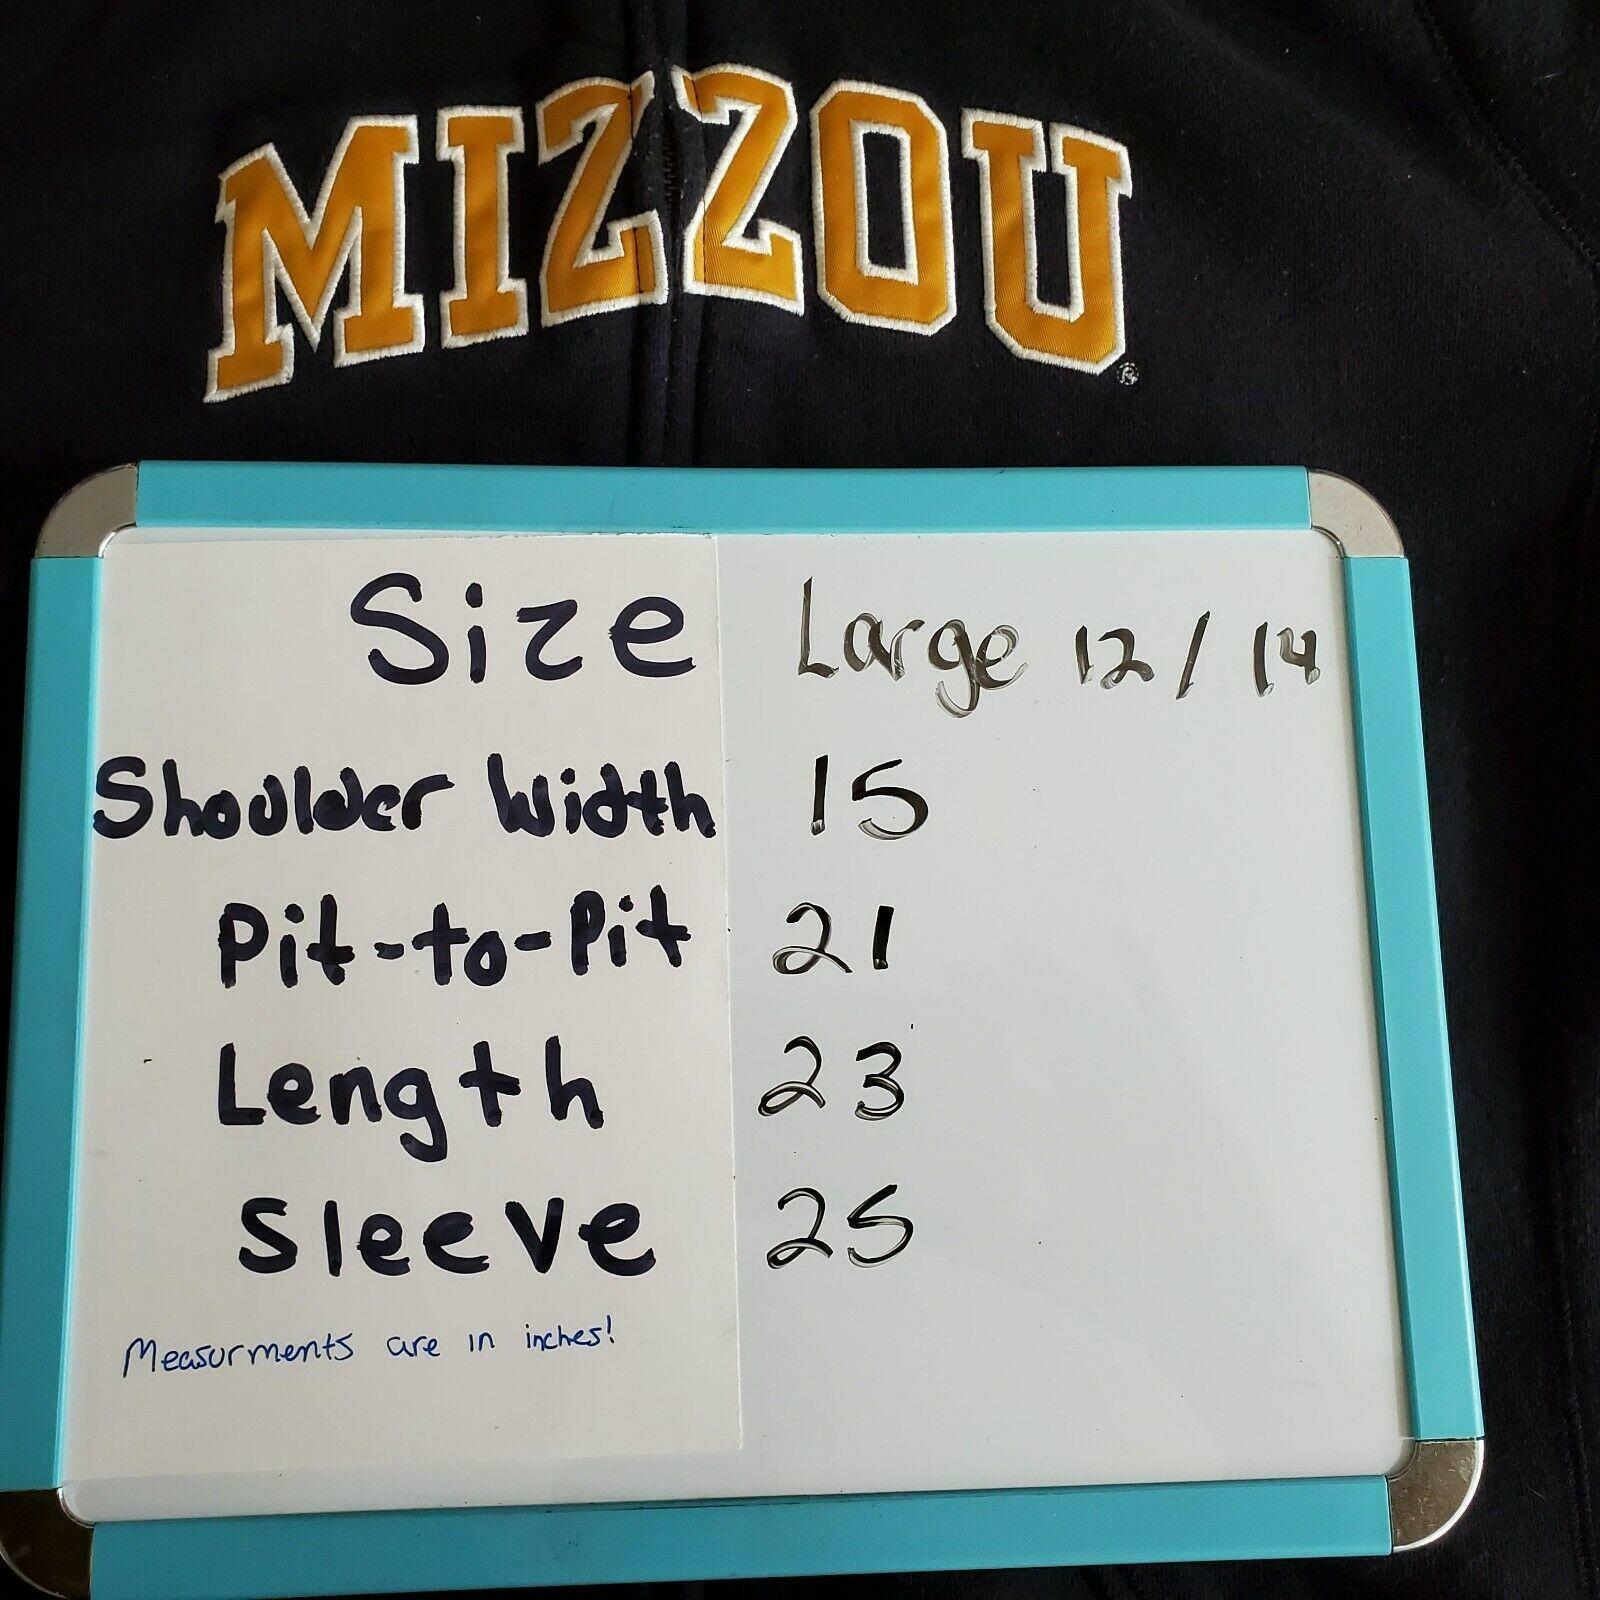 MIZZOU
®
Size Large 12 / 14
Shoulder Width 15
Pit-to-Pit 21
Length 23
Sleeve 25
Measurments are in inches!